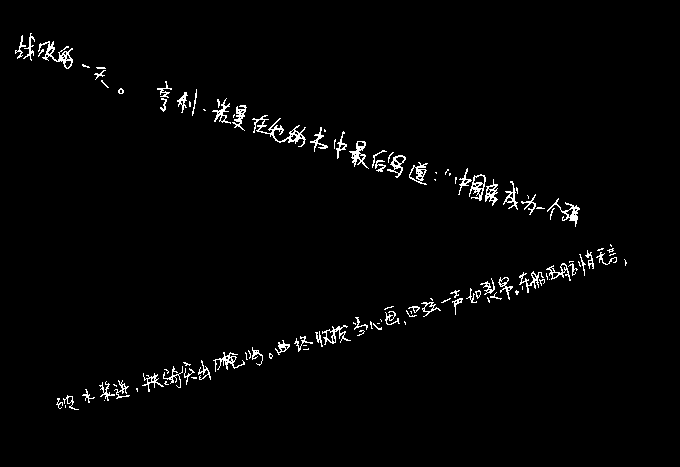 战败的一天。亨利·诺曼在他的书中最后写道:“中国要成为一个强
破水浆进,铁骑突出刀枪鸣。曲终收拨当心画,四弦一声如裂帛。东船西舫悄无言,